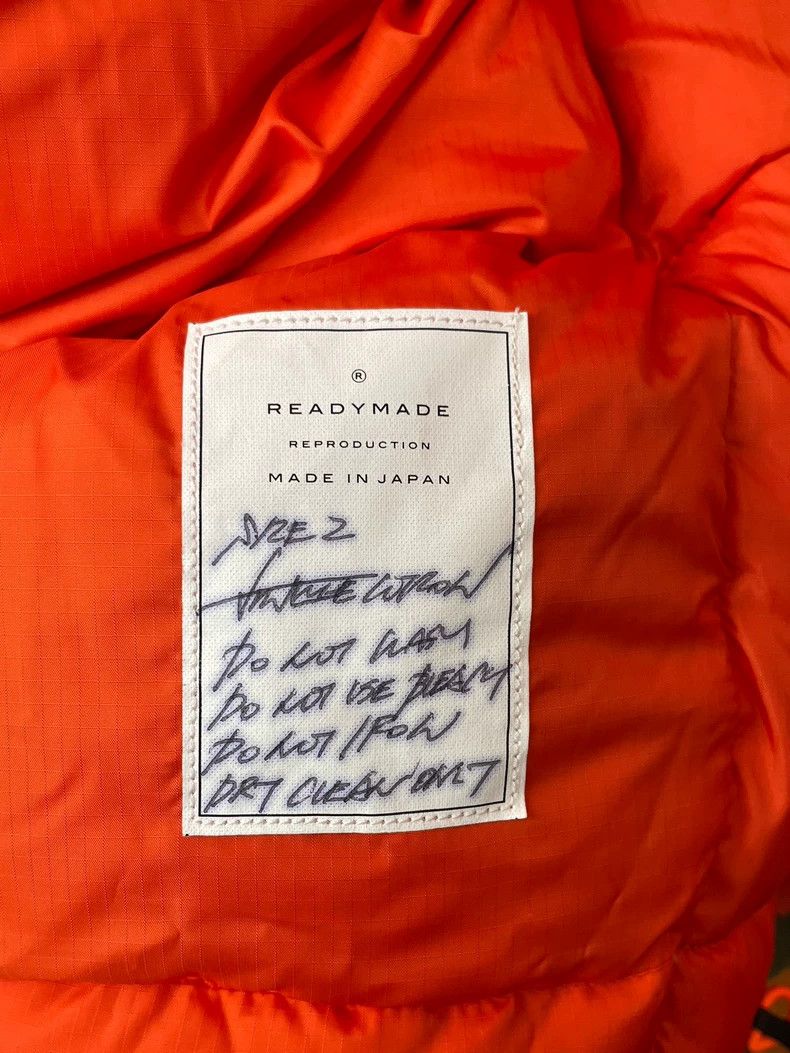 ®
READYMADE
REPRODUCTION
MADE IN JAPAN
SIZE 2
DO NOT WASH
DO NOT USE BLEACH
DO NOT IRON
DRY CLEAN ONLY